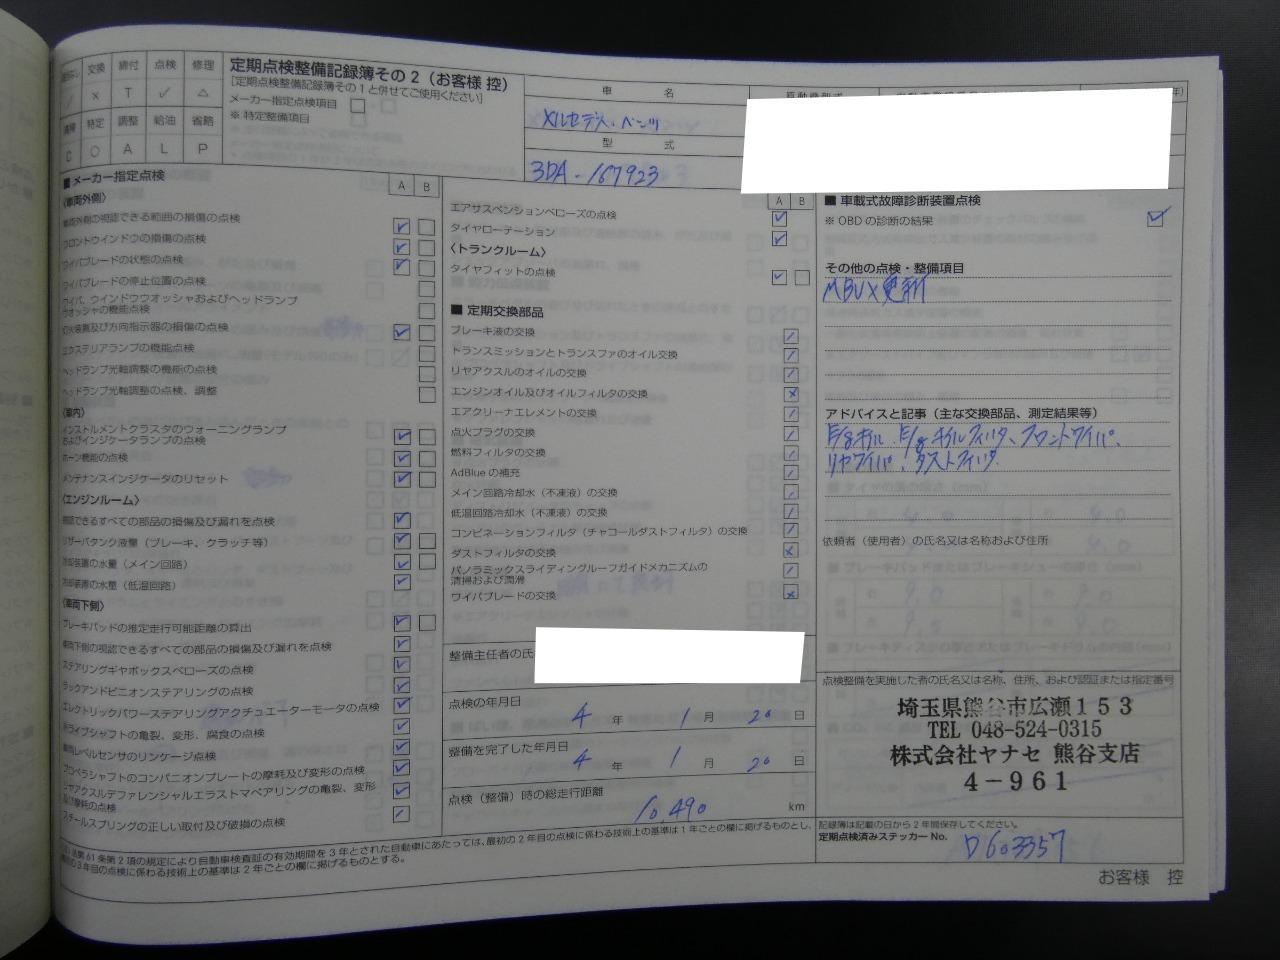 交換 締付 点検 修理
× T ✓ △
特定 調整 給油 省略
C ○ A L P
定期点検整備記録簿その2（お客様 控）
[定期点検整備記録簿その1と併せてご使用ください]
メーカー指定点検項目 □
※ 特定整備項目 □
車 名
メルセデス・ベンツ
型 式
3DA-167923
■ メーカー指定点検
A B
〈車両外側〉
車両外側の視認できる範囲の損傷の点検
フロントウインドウの損傷の点検
ワイパブレードの状態の点検
ワイパブレードの停止位置の点検
ワイパ、ウインドウウオッシャおよびヘッドランプ
ウオッシャの機能点検
灯火装置及び方向指示器の損傷の点検
エクステリアランプの機能点検
ヘッドランプ光軸調整の機能の点検
ヘッドランプ光軸調整の点検、調整
〈車内〉
インストルメントクラスタのウォーニングランプ
およびインジケータランプの点検
ホーン機能の点検
メンテナンスインジケータのリセット
〈エンジンルーム〉
視認できるすべての部品の損傷及び漏れを点検
リザーバタンク液量（ブレーキ、クラッチ等）
冷却装置の水量（メイン回路）
冷却装置の水量（低温回路）
〈車両下側〉
ブレーキパッドの推定走行可能距離の算出
車両下側の視認できるすべての部品の損傷及び漏れを点検
ステアリングギヤボックスベローズの点検
ラックアンドピニオンステアリングの点検
エレクトリックパワーステアリングアクチュエーターモータの点検
ドライブシャフトの亀裂、変形、腐食の点検
車両レベルセンサのリンケージ点検
プロペラシャフトのコンパニオンプレートの摩耗及び変形の点検
リヤアクスルデファレンシャルエラストマベアリングの亀裂、変形
及び摩耗の点検
スチールスプリングの正しい取付及び破損の点検
A B
エアサスペンションベローズの点検
タイヤローテーション
〈トランクルーム〉
タイヤフィットの点検
■ 定期交換部品
ブレーキ液の交換
トランスミッションとトランスファのオイル交換
リヤアクスルのオイルの交換
エンジンオイル及びオイルフィルタの交換
エアクリーナエレメントの交換
点火プラグの交換
燃料フィルタの交換
AdBlue の補充
メイン回路冷却水（不凍液）の交換
低温回路冷却水（不凍液）の交換
コンビネーションフィルタ（チャコールダストフィルタ）の交換
ダストフィルタの交換
パノラミックスライディングルーフガイドメカニズムの
清掃および潤滑
ワイパブレードの交換
整備主任者の氏
点検の年月日
4 年 1 月 20 日
整備を完了した年月日
4 年 1 月 20 日
点検（整備）時の総走行距離
10,490 km
■ 車載式故障診断装置点検
※ OBD の診断の結果
その他の点検・整備項目
MBUX更新
アドバイスと記事（主な交換部品、測定結果等）
E/gオイル、E/gオイルフィルタ、フロントワイパ、
リヤワイパ、ダストフィルタ
依頼者（使用者）の氏名又は名称および住所
点検整備を実施した者の氏名又は名称、住所、および認証または指定番号
埼玉県熊谷市広瀬153
TEL 048-524-0315
株式会社ヤナセ 熊谷支店
4-961
記録簿は記載の日から2年間保存してください。
定期点検済みステッカー No.
D603357
法第61条第2項の規定により自動車検査証の有効期間を3年とされた自動車にあたっては、最初の2年目の点検に係わる技術上の基準は1年ごとの欄に掲げるものとし、
の3年目の点検に係わる技術上の基準は2年ごとの欄に掲げるものとする。
お客様 控